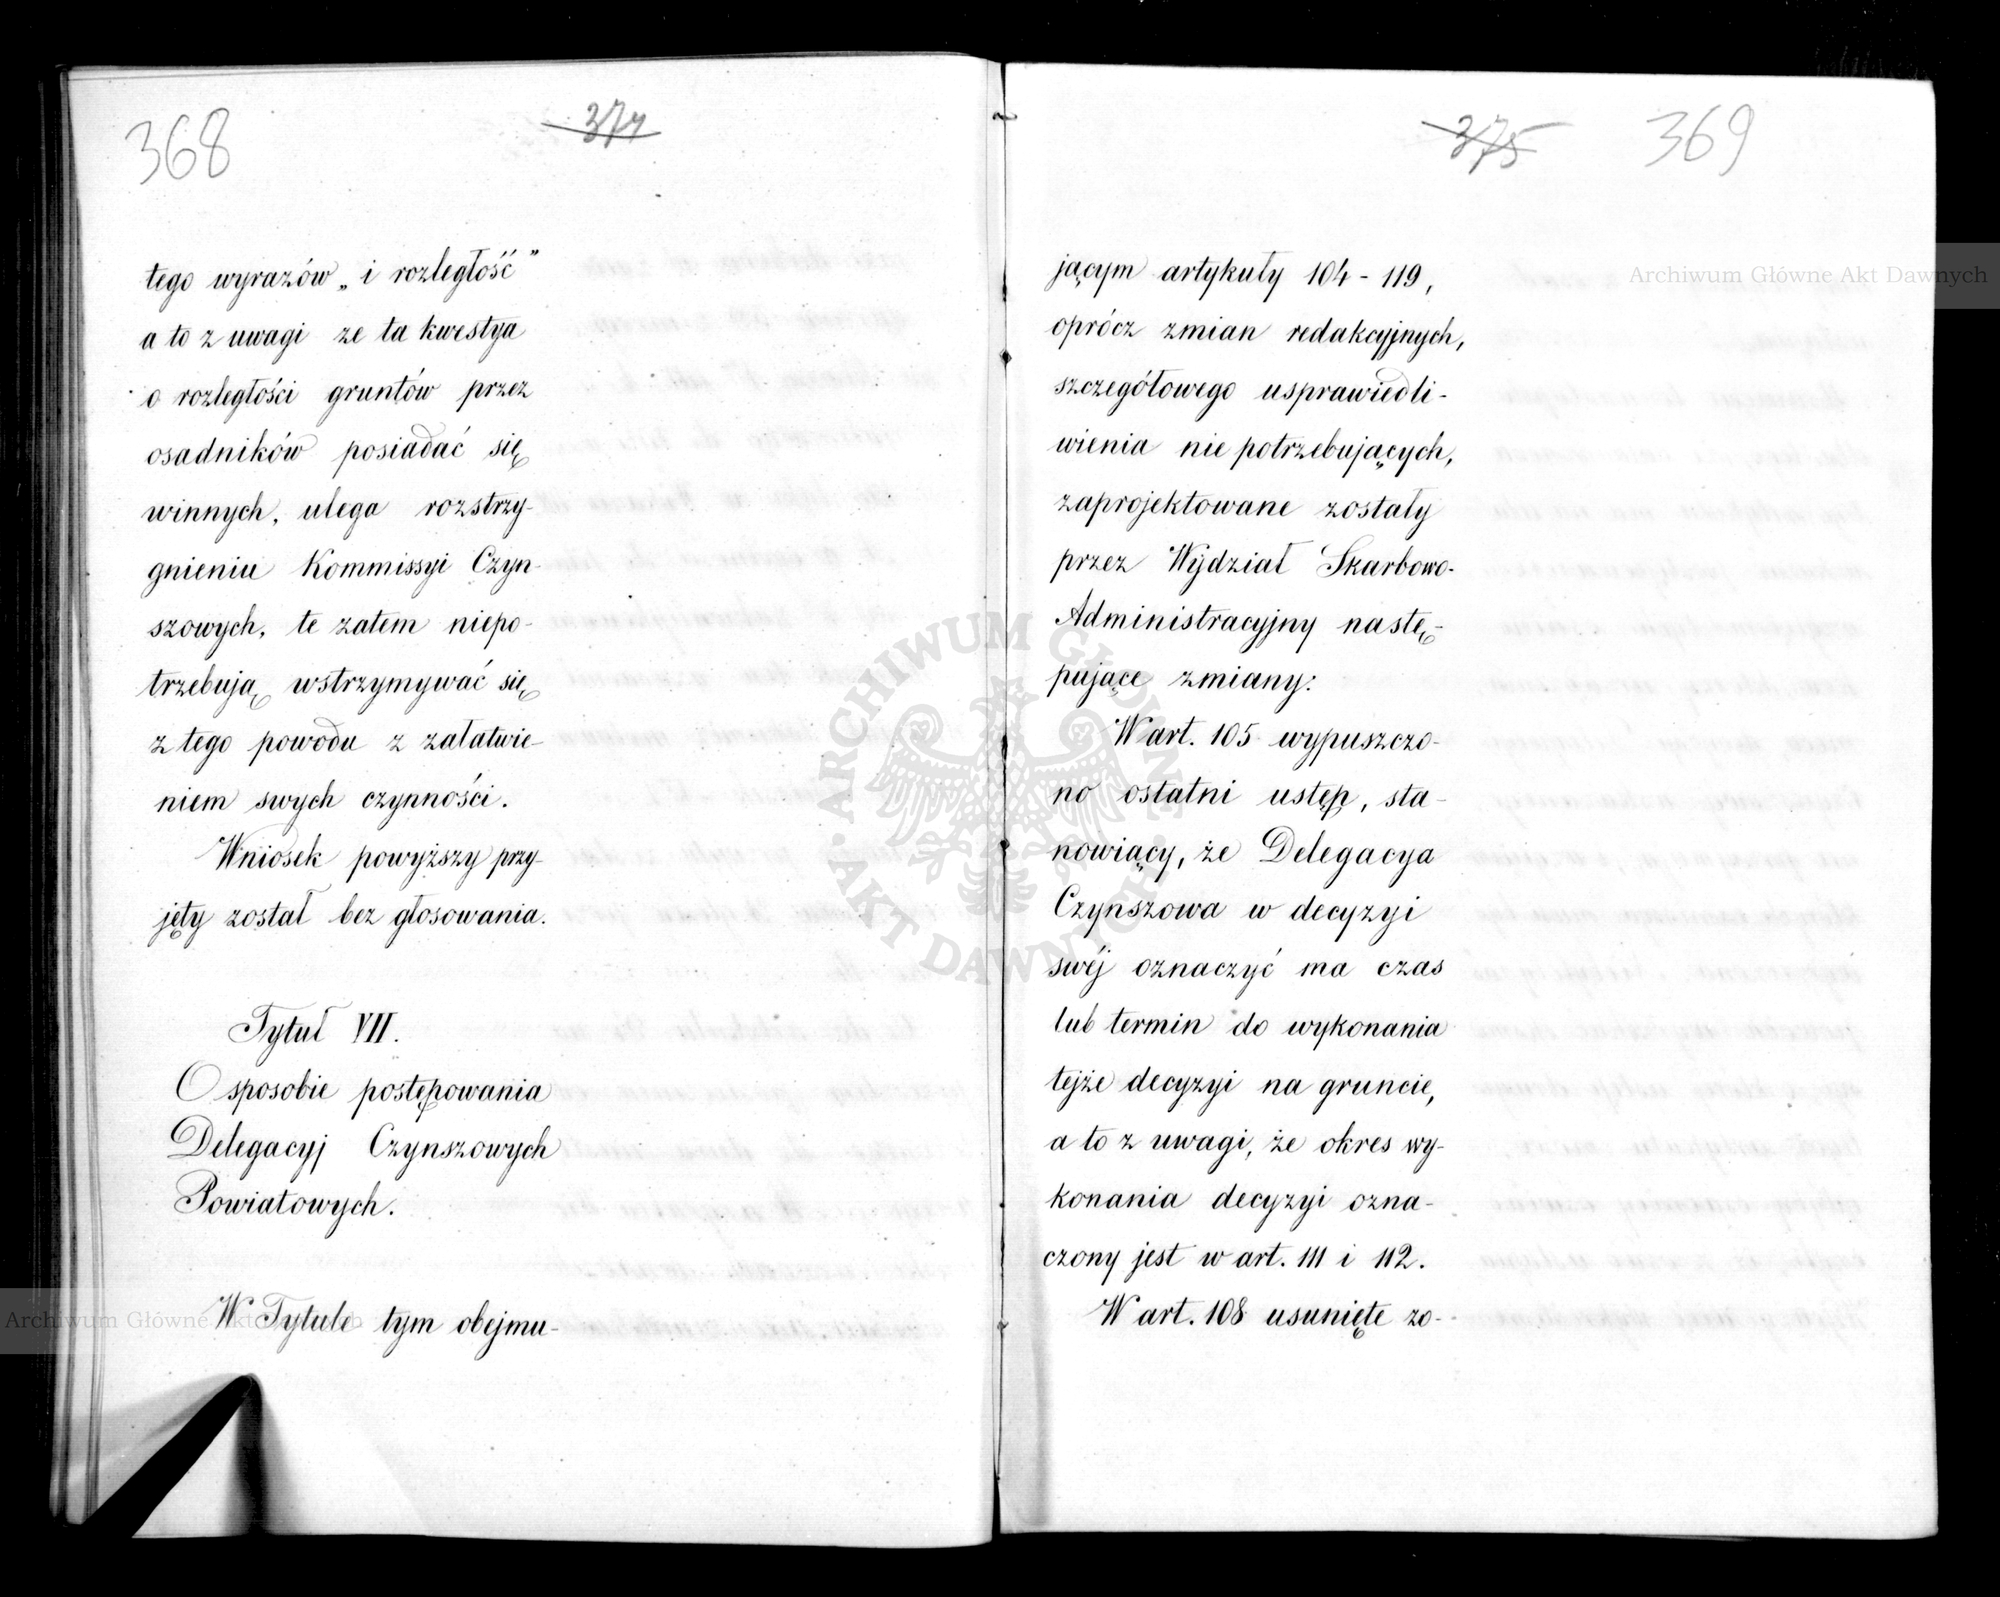 368
374
tego wyrazów „i rozległość”
a to z uwagi ze ta kwestya
o rozległości gruntów przez
osadników posiadać się
winnych, ulega rozstrzy-
gnieniu Kommissyi Czyn-
szowych, te zatem niepo-
trzebują wstrzymywać się
z tego powodu z załatwie-
niem swych czynności.
Wniosek powyższy przy-
jęty został bez głosowania.
Tytuł VII.
O sposobie postępowania
Delegacyj Czynszowych
Powiatowych.
W Tytule tym obejmu-
375
369
jącym artykuły 104 - 119,
oprócz zmian redakcyjnych,
szczegółowego usprawiedli-
wienia nie potrzebujących,
zaprojektowane zostały
przez Wydział Skarbowo-
Administracyjny nastę-
pujące zmiany:
W art. 105 wypuszczo-
no ostatni ustęp, sta-
nowiący, że Delegacya
Czynszowa w decyzyi
swéj oznaczyć ma czas
lub termin do wykonania
tejże decyzyi na gruncie,
a to z uwagi, że okres wy-
konania decyzyi ozna-
czony jest w art. 111 i 112.
W art. 108 usunięte zo-
Archiwum Główne Akt Dawnych
Archiwum Główne Akt Dawnych
ARCHIWUM GŁÓWNE
AKT DAWNYCH